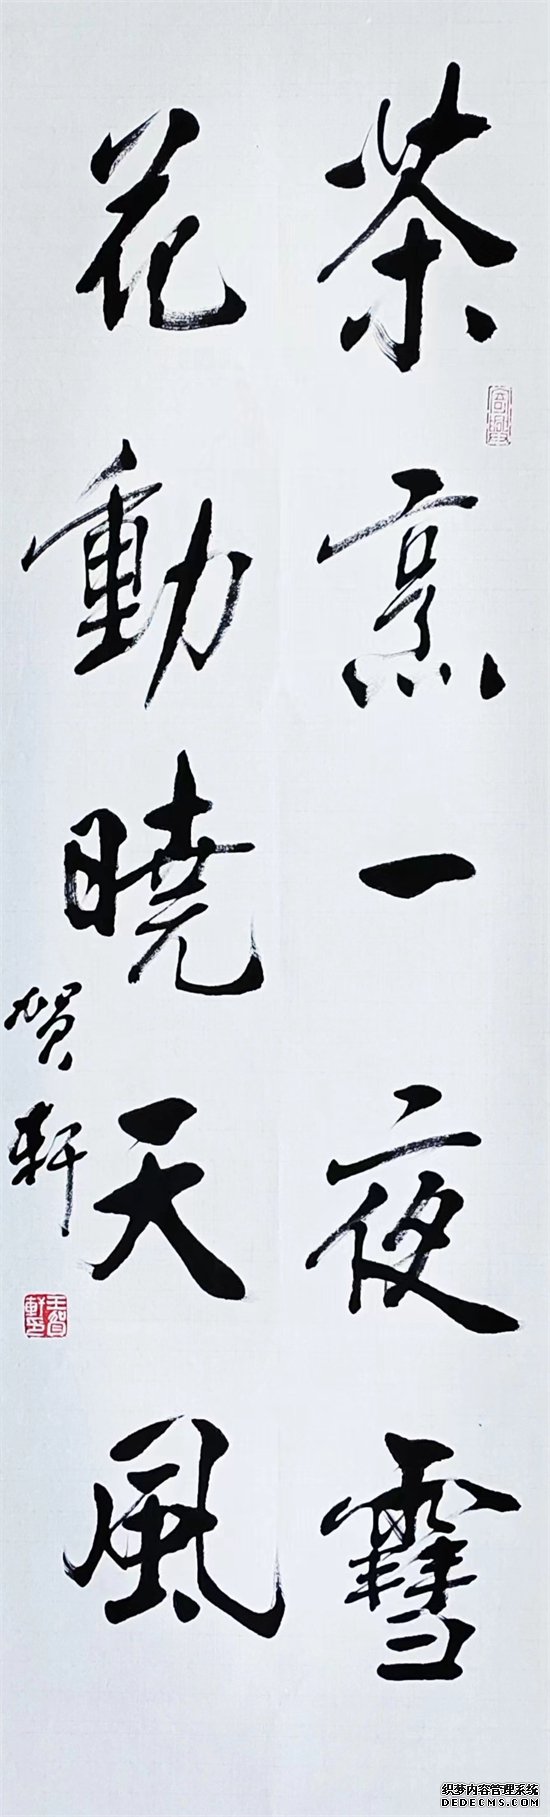 茶烹一夜雪
花動曉天風
賀軒
王賀軒印
织梦内容管理系统
DEDECMS.COM